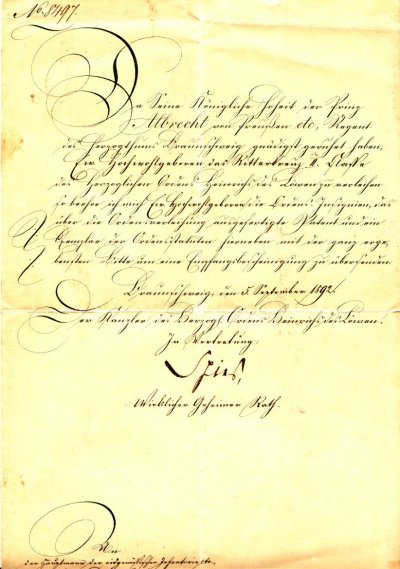 No. 8497.
Da Seine Königliche Hoheit der Prinz
Albrecht von Preußen etc, Regent
des Herzogthums Braunschweig gnädigst geruht haben,
Ew. Hochwohlgeboren das Ritterkreuz II. Classe
des Herzoglichen Ordens Heinrichs des Löwen zu verleihen
so beehre ich mich Ew. Hochwohlgeboren die Ordens-Insignien, das
über die Ordensverleihung ausgefertigte Patent und ein
Exemplar der Ordensstatuten hieneben mit der ganz erge-
bensten Bitte um eine Empfangsbescheinigung zu übersenden.
Braunschweig, den 5. September 1892.
Der Kanzler des Herzogl. Ordens Heinrichs des Löwen.
In Vertretung:
Spies,
Wirklicher Geheimer Rath.
An
den Hauptmann der eidgenössischen Infanterie etc.,